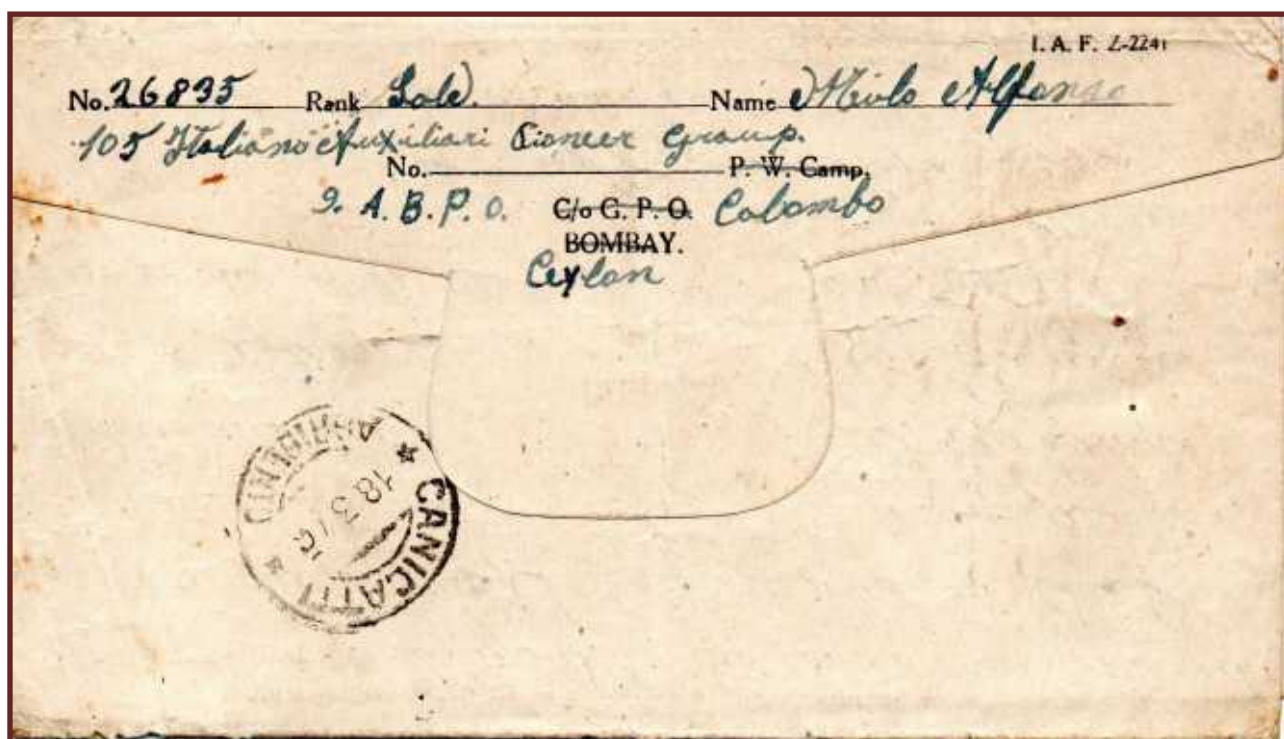 I. A. F. Z-2241
No. 26835 Rank Sold. Name Alfonso
105 Italiano Auxiliari Pioneer Group.
No. P. W. Camp.
9. A. B. P. O. C/o G. P. O. Colombo
BOMBAY.
Ceylon
AGRIGENTO
18.3.46
CANICATTI